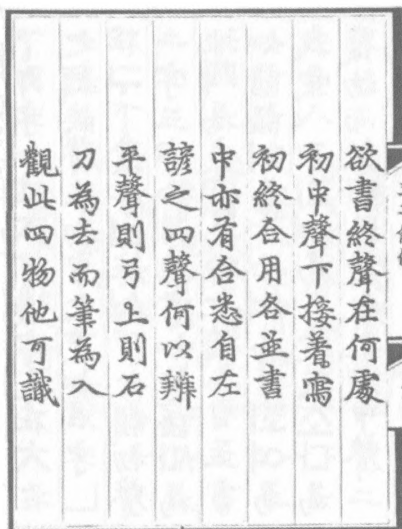 欲書終聲在何處
初中聲下接着寫
初終合用各並書
中亦有合悉自左
諺之四聲何以辨
平聲則弓上則石
刀為去而筆為入
觀此四物他可識